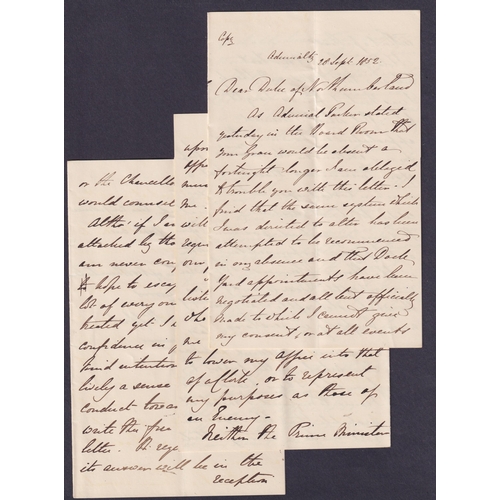 Copy
Admiralty 20 Sept. 1852
Dear Duke of Northumberland
As Admiral Parker stated
yesterday in the Board Room that
Your Grace would be absent a
fortnight longer I am obliged
to trouble you with this letter. I
find that the same system which
I was directed to alter has been
attempted to be recommenced
in my absence and that Dock
Yard appointments have been
negotiated and all but officially
made to which I cannot give
my consent, or at all events
upon
me
to lower my office into that
of a Clerk, or to represent
my purposes as those of
an Enemy.
Neither the Prime Minister
or the Chancello
would counsel
Altho' if I am
attacked by tho
am never con
hope to esca
lot of every on
treated yet I
confidence in
kind intention
lively a sense
conduct towar
write this
letter.
its answer will be in the
reception